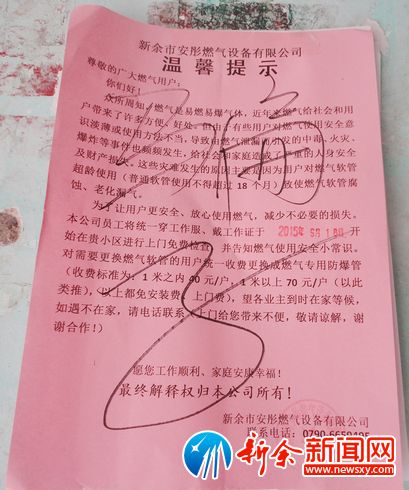 新余市安彤燃气设备有限公司
温馨提示
尊敬的广大燃气用户：
你们好！
众所周知，燃气是易燃易爆气体，近年来燃气给社会和用
户带来了许多方便、好处。但由于有些用户对燃气使用安全意
识淡薄或使用方法不当，导致由燃气泄漏而引发的中毒、火灾、
爆炸等事件也频频发生，给社会和家庭造成了严重的人身安全
及财产损失，这些灾难发生的原因主要是因为用户对燃气软管
超龄使用（普通软管使用不得超过18个月）致使燃气软管腐
蚀、老化漏气。
为了让用户更安全、放心使用燃气，减少不必要的损失。
本公司员工将统一穿工作服、戴工作证于 2015年9月1日 开
始在贵小区进行上门免费检查，并告知燃气使用安全小常识。
对需要更换燃气软管的用户统一收费更换成燃气专用防爆管
（收费标准为：1米之内40元/户，1米以上70元/户（以此
类推），以上都免安装费、上门费），望各业主到时在家等候，
如遇不在家，请电话联系（上门给您带来不便，敬请谅解，谢
谢合作！）
愿您工作顺利、家庭安康幸福！
最终解释权归本公司所有！
新余市安彤燃气设备有限公司
联系电话：0790-6650495
新余新闻网
www.newsxy.com